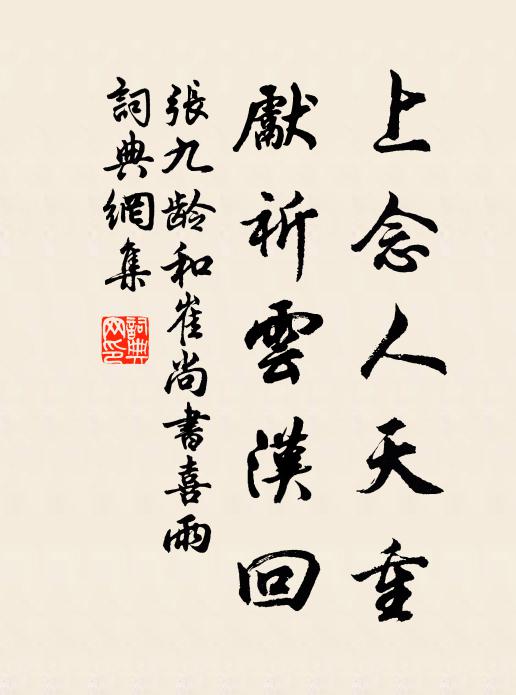 上念人天重
獻祈雲漢回
張九龄和崔尚書喜雨
詞典網集
詞典网印